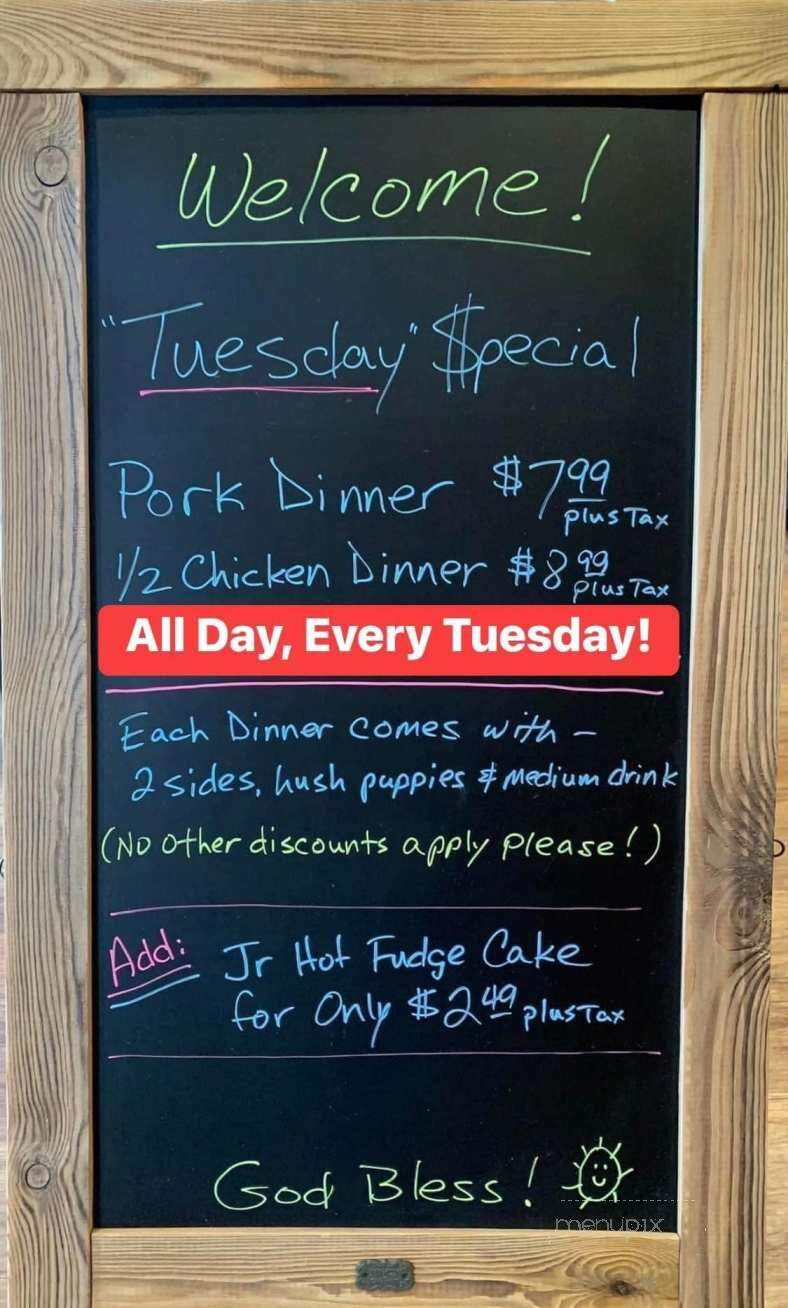 Welcome!
"Tuesday" $pecial
Pork Dinner $7.99 plus Tax
1/2 Chicken Dinner $8.99 plus Tax
All Day, Every Tuesday!
Each Dinner comes with -
2 sides, hush puppies & medium drink
(No other discounts apply please!)
Add: Jr Hot Fudge Cake
for Only $2.49 plus Tax
God Bless!
menupix